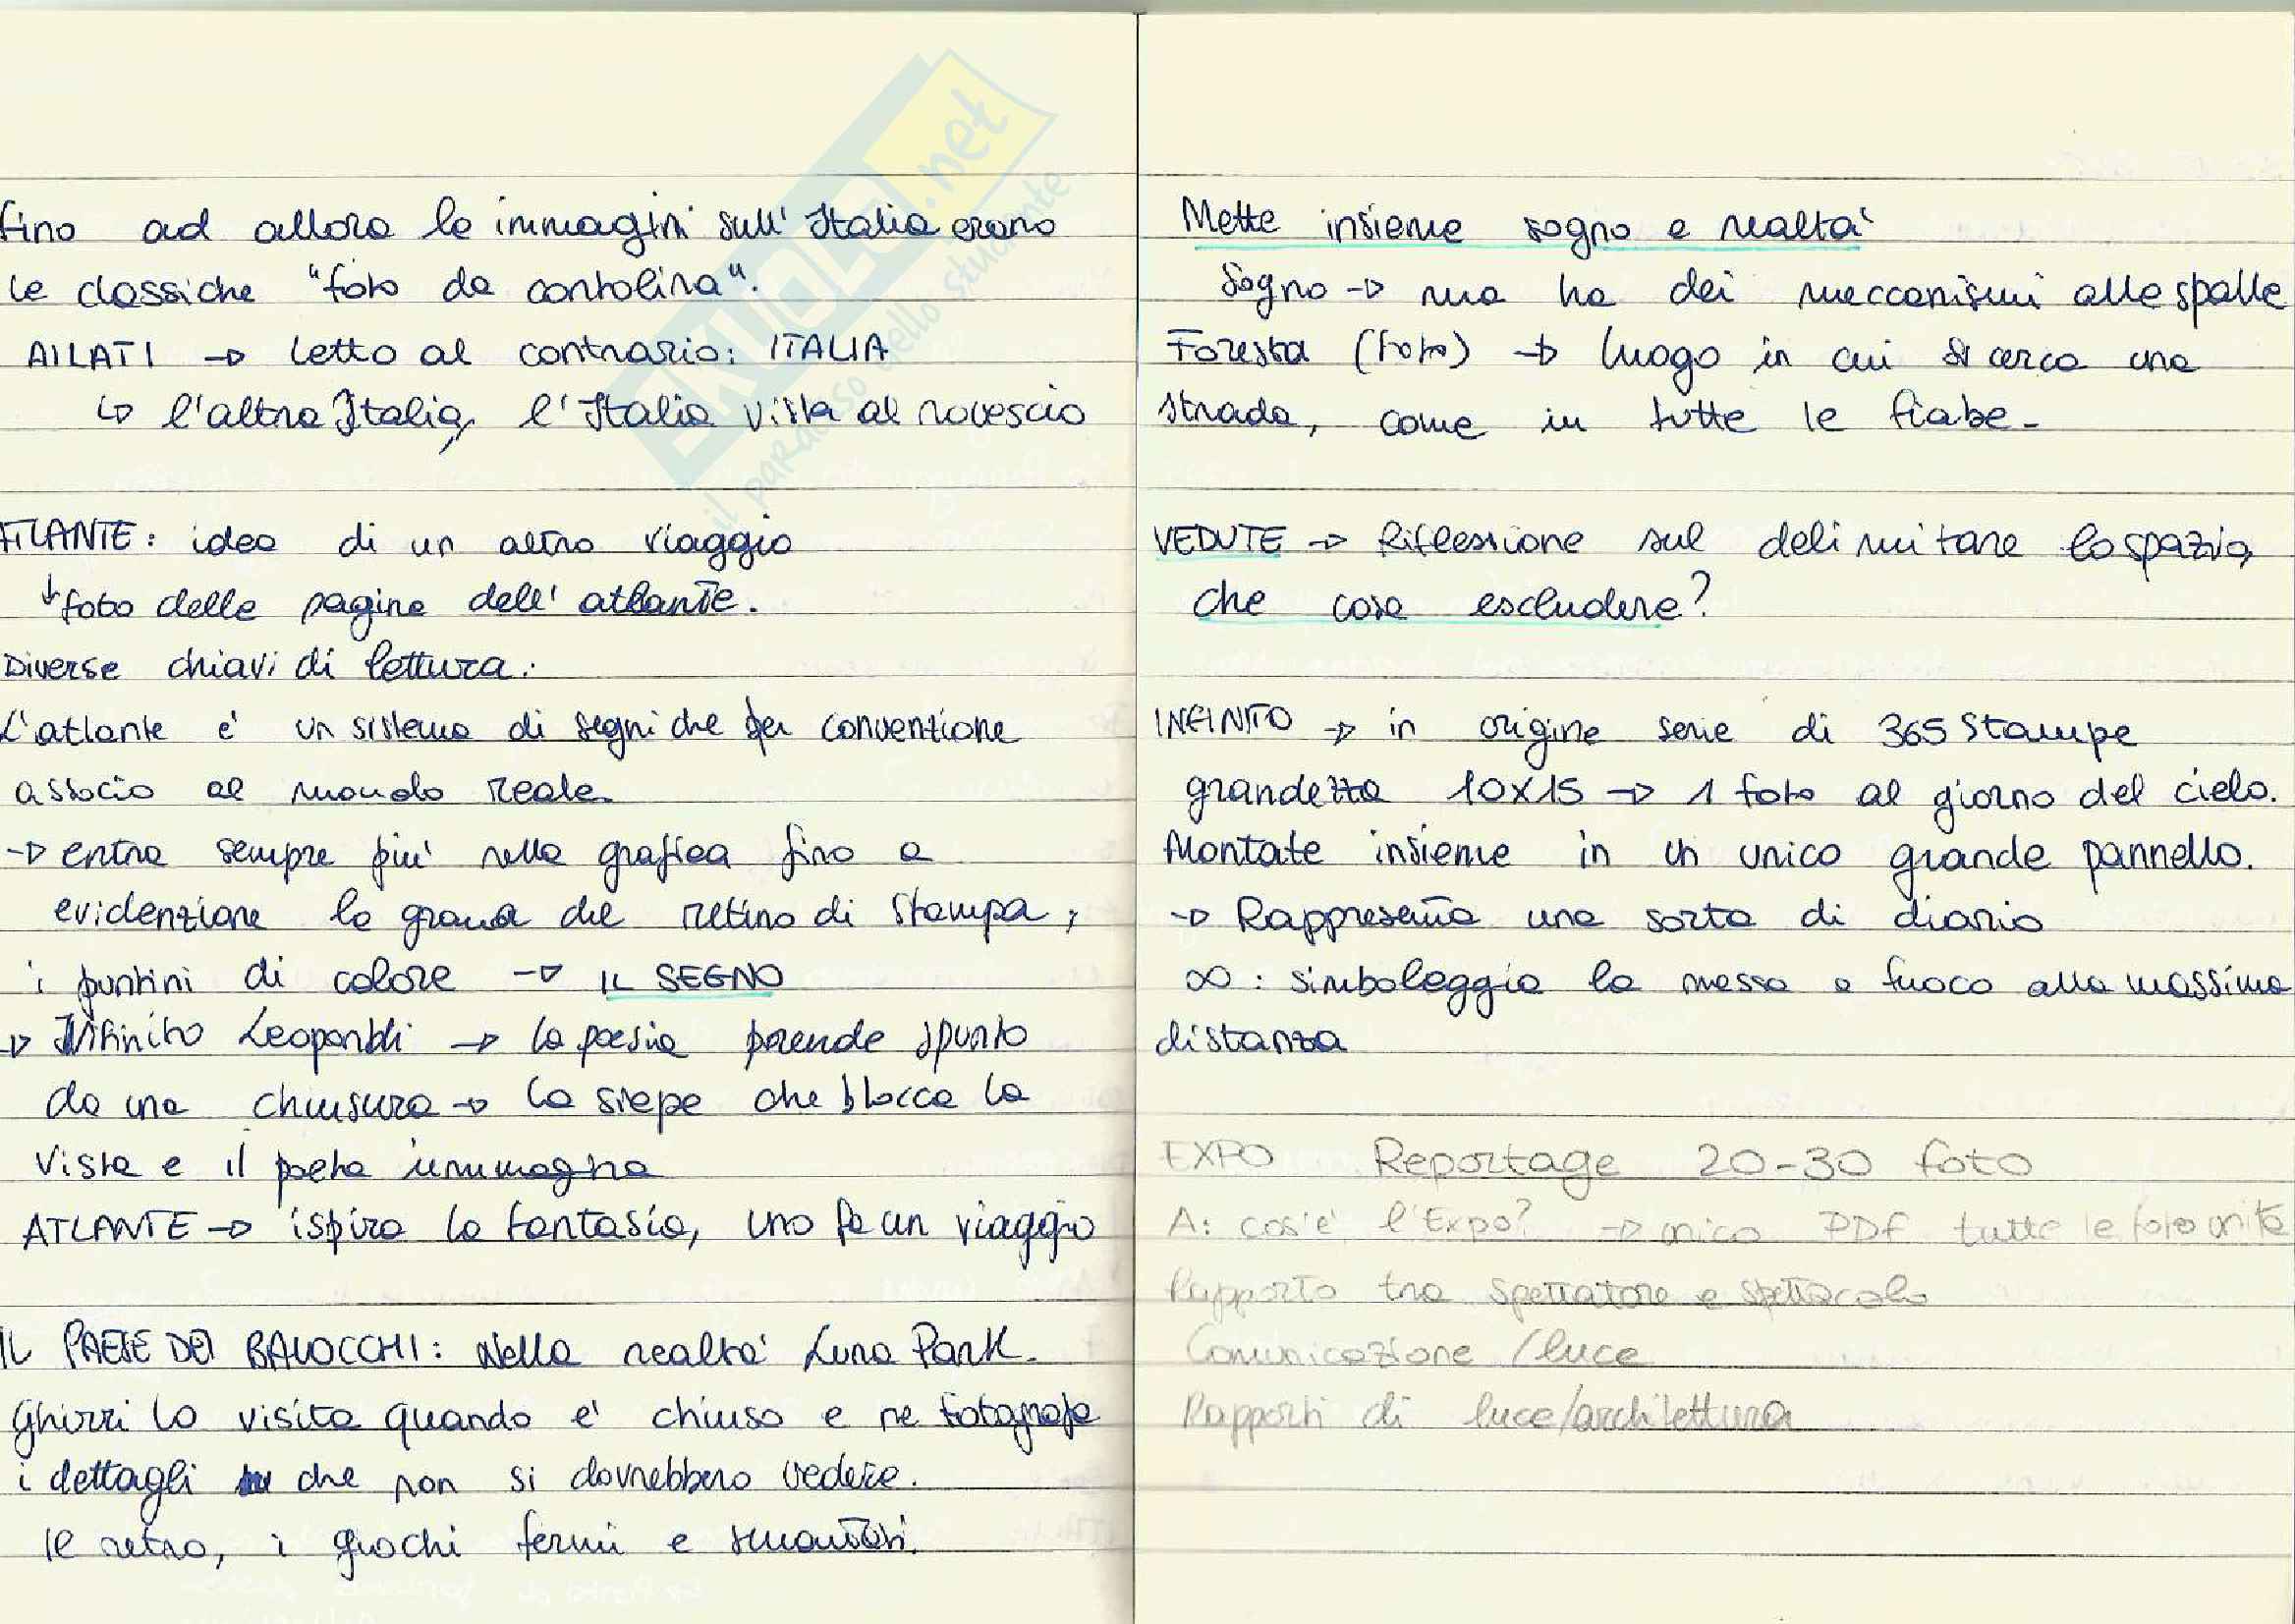 fino ad allora le immagini sull'Italia erano
le classiche "foto da cartolina".
AILATI → letto al contrario: ITALIA
↳ l'altra Italia, l'Italia vista al rovescio
ATLANTE: idea di un altro viaggio
↓ foto delle pagine dell'atlante.
Diverse chiavi di lettura:
L'atlante è un sistema di segni che per convenzione
associo al mondo reale
→ entra sempre più nella grafica fino a
evidenziare la grana del retino di stampa,
i puntini di colore → IL SEGNO
→ Infinito Leopardi → la poesia prende spunto
da una chiusura → la siepe che blocca la
vista e il poeta immagina
ATLANTE → ispira la fantasia, uno fa un viaggio
IL PAESE DEI BALOCCHI: Nella realtà Luna Park.
Ghirri lo visita quando è chiuso e ne fotografa
i dettagli che non si dovrebbero vedere.
il retro, i giochi fermi e smontati.
Mette insieme sogno e realtà
Sogno → ma ha dei meccanismi alle spalle
Foresta (foto) → luogo in cui si cerca una
strada, come in tutte le fiabe.
VEDUTE → Riflessione sul delimitare lo spazio,
che cosa escludere?
INFINITO → in origine serie di 365 stampe
grandezza 10x15 → 1 foto al giorno del cielo.
Montate insieme in un unico grande pannello.
→ Rappresenta una sorta di diario
∞ : simboleggia la messa a fuoco alla massima
distanza
EXPO Reportage 20-30 foto
A: cos'è l'Expo? → unico PDF tutte le foto unite
Rapporto tra spettatore e spettacolo
Comunicazione / luce
Rapporti di luce/architettura
SKUOLA.net
il paradiso dello studente